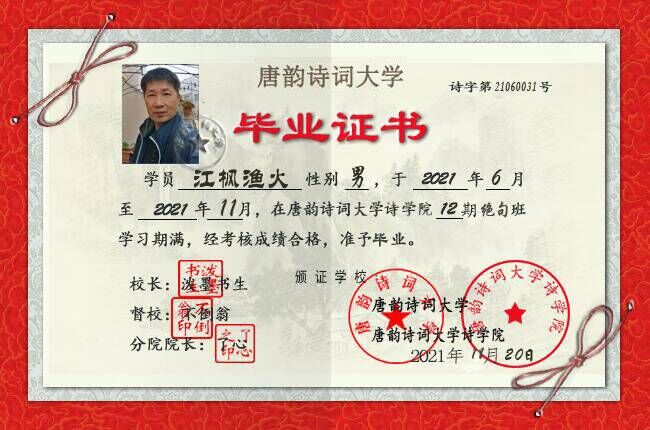 唐韵诗词大学
诗字第21060031号
毕业证书
学员 江枫渔火 性别 男，于 2021 年 6 月
至 2021 年 11月，在唐韵诗词大学诗学院 12 期绝句班
学习期满，经考核成绩合格，准予毕业。
颁证学校：
校长：泼墨书生
督校：不倒翁
分院院长：了心
唐韵诗词大学
唐韵诗词大学诗学院
2021年 11月 20日
泼墨书生
不倒翁印
了心之印
唐韵诗词大学
唐韵诗词大学诗学院